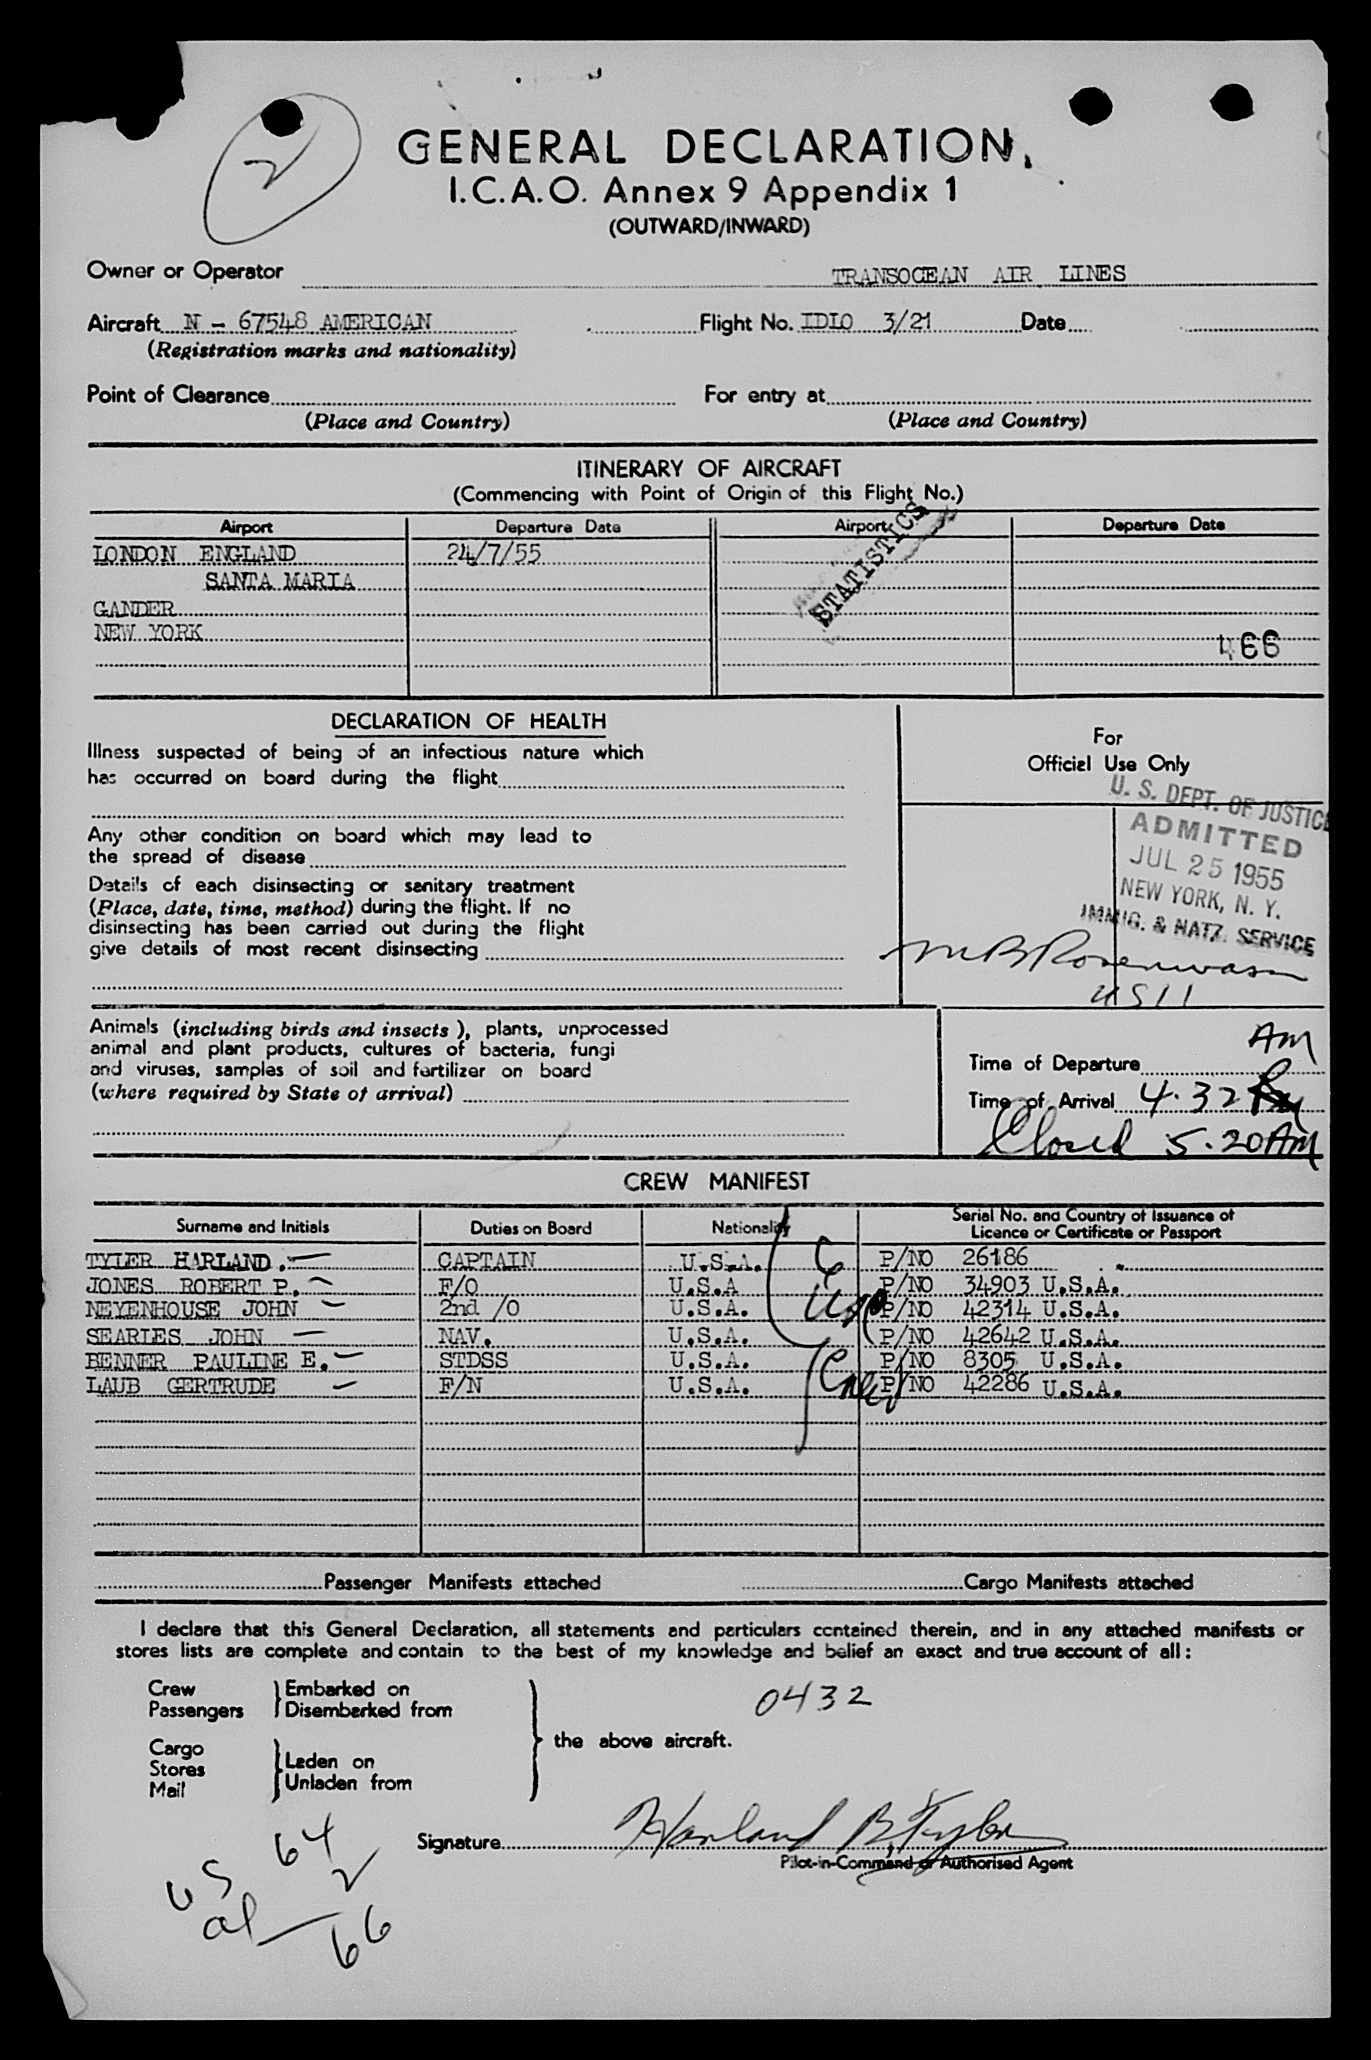 2
GENERAL DECLARATION.
I.C.A.O. Annex 9 Appendix 1
(OUTWARD/INWARD)
Owner or Operator TRANSOCEAN AIR LINES
Aircraft N - 67548 AMERICAN Flight No. IDLO 3/21 Date
(Registration marks and nationality)
Point of Clearance For entry at
(Place and Country) (Place and Country)
ITINERARY OF AIRCRAFT
(Commencing with Point of Origin of this Flight No.)
Airport Departure Date Airport Departure Date
STATISTICS
LONDON ENGLAND 24/7/55
SANTA MARIA
GANDER
NEW YORK
466
DECLARATION OF HEALTH
Illness suspected of being of an infectious nature which
has occurred on board during the flight
Any other condition on board which may lead to
the spread of disease
Details of each disinsecting or sanitary treatment
(Place, date, time, method) during the flight. If no
disinsecting has been carried out during the flight
give details of most recent disinsecting
For
Official Use Only
U. S. DEPT. OF JUSTICE
ADMITTED
JUL 25 1955
NEW YORK, N. Y.
IMMIG. & NATZ. SERVICE
Animals (including birds and insects), plants, unprocessed
animal and plant products, cultures of bacteria, fungi
and viruses, samples of soil and fertilizer on board
(where required by State of arrival)
AM
Time of Departure
Time of Arrival 4.32
Closed 5.20 AM
CREW MANIFEST
Surname and Initials Duties on Board Nationality Serial No. and Country of Issuance of
Licence or Certificate or Passport
TYLER HARLAND. CAPTAIN U.S.A. P/NO 26186
JONES ROBERT P. F/O U.S.A P/NO 34903 U.S.A.
NEYENHOUSE JOHN 2nd /O U.S.A. P/NO 42314 U.S.A.
SEARLES JOHN NAV. U.S.A. P/NO 42642 U.S.A.
BENNER PAULINE E. STDSS U.S.A. P/NO 8305 U.S.A.
LAUB GERTRUDE F/N U.S.A. P/NO 42286 U.S.A.
Passenger Manifests attached Cargo Manifests attached
I declare that this General Declaration, all statements and particulars contained therein, and in any attached manifests or
stores lists are complete and contain to the best of my knowledge and belief an exact and true account of all:
Crew Embarked on
Passengers Disembarked from
0432
the above aircraft.
Cargo
Stores Laden on
Mail Unladen from
Signature Harland B. Tyler
Pilot-in-Command or Authorised Agent
US 64
al 2
66